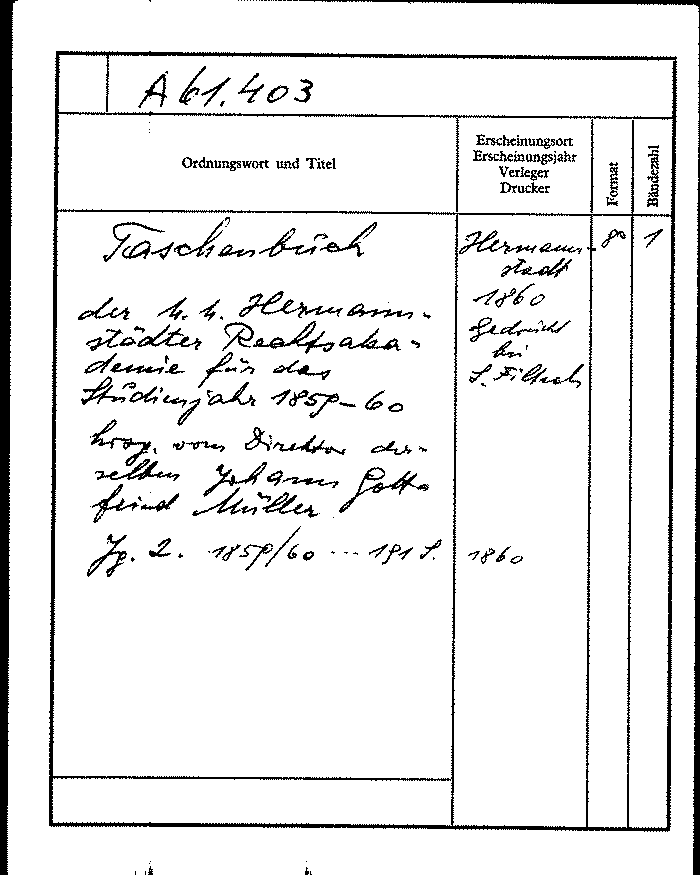 A 61.403
Ordnungswort und Titel
Erscheinungsort
Erscheinungsjahr
Verleger
Drucker
Format
Bändezahl
Taschenbuch
der k. k. Hermann-
städter Rechtsaka-
demie für das
Studienjahr 1859-60
hrsg. vom Direktor der-
selben Johann Gott-
fried Müller
Jg. 2. 1859/60 --- 191 S.
Hermann-
stadt
1860
Gedruckt
bei
S. Filtsch
1860
8°
1